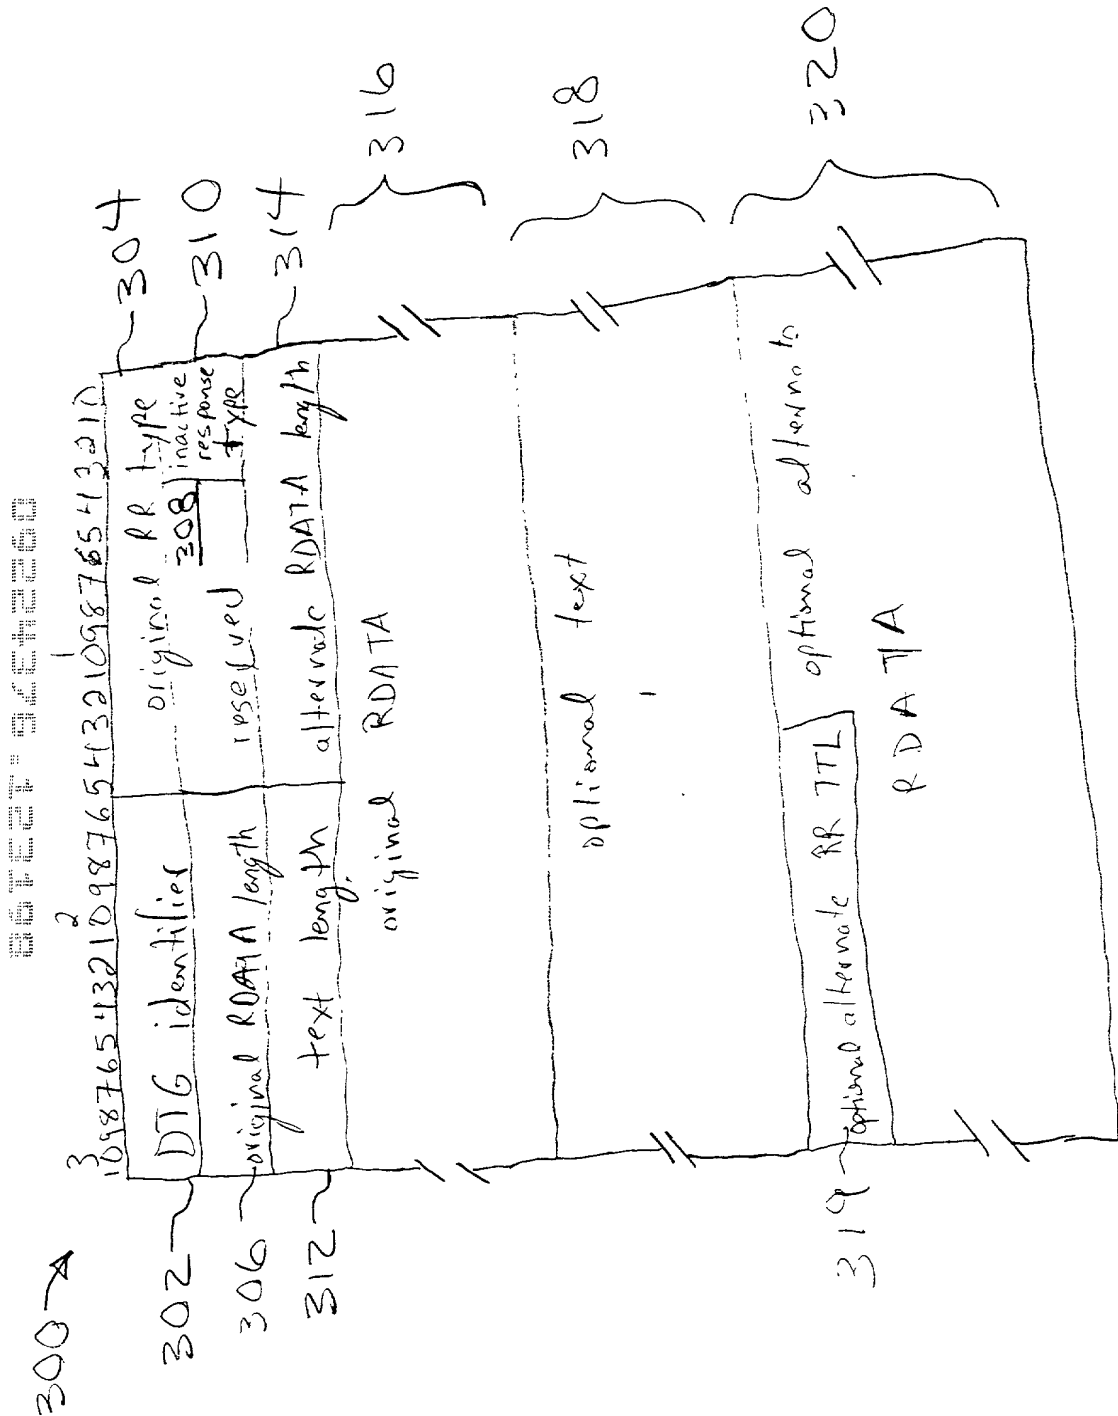 300
3 2 1
10987654321098765432109876543210
302
DTG identifier
original RR type
304
306
original RDATA length
reserved
308
inactive
response
type
310
312
text length
alternate RDATA length
314
original RDATA
316
optional text
318
319
optional alternate RR TTL
optional alternate
RDATA
320